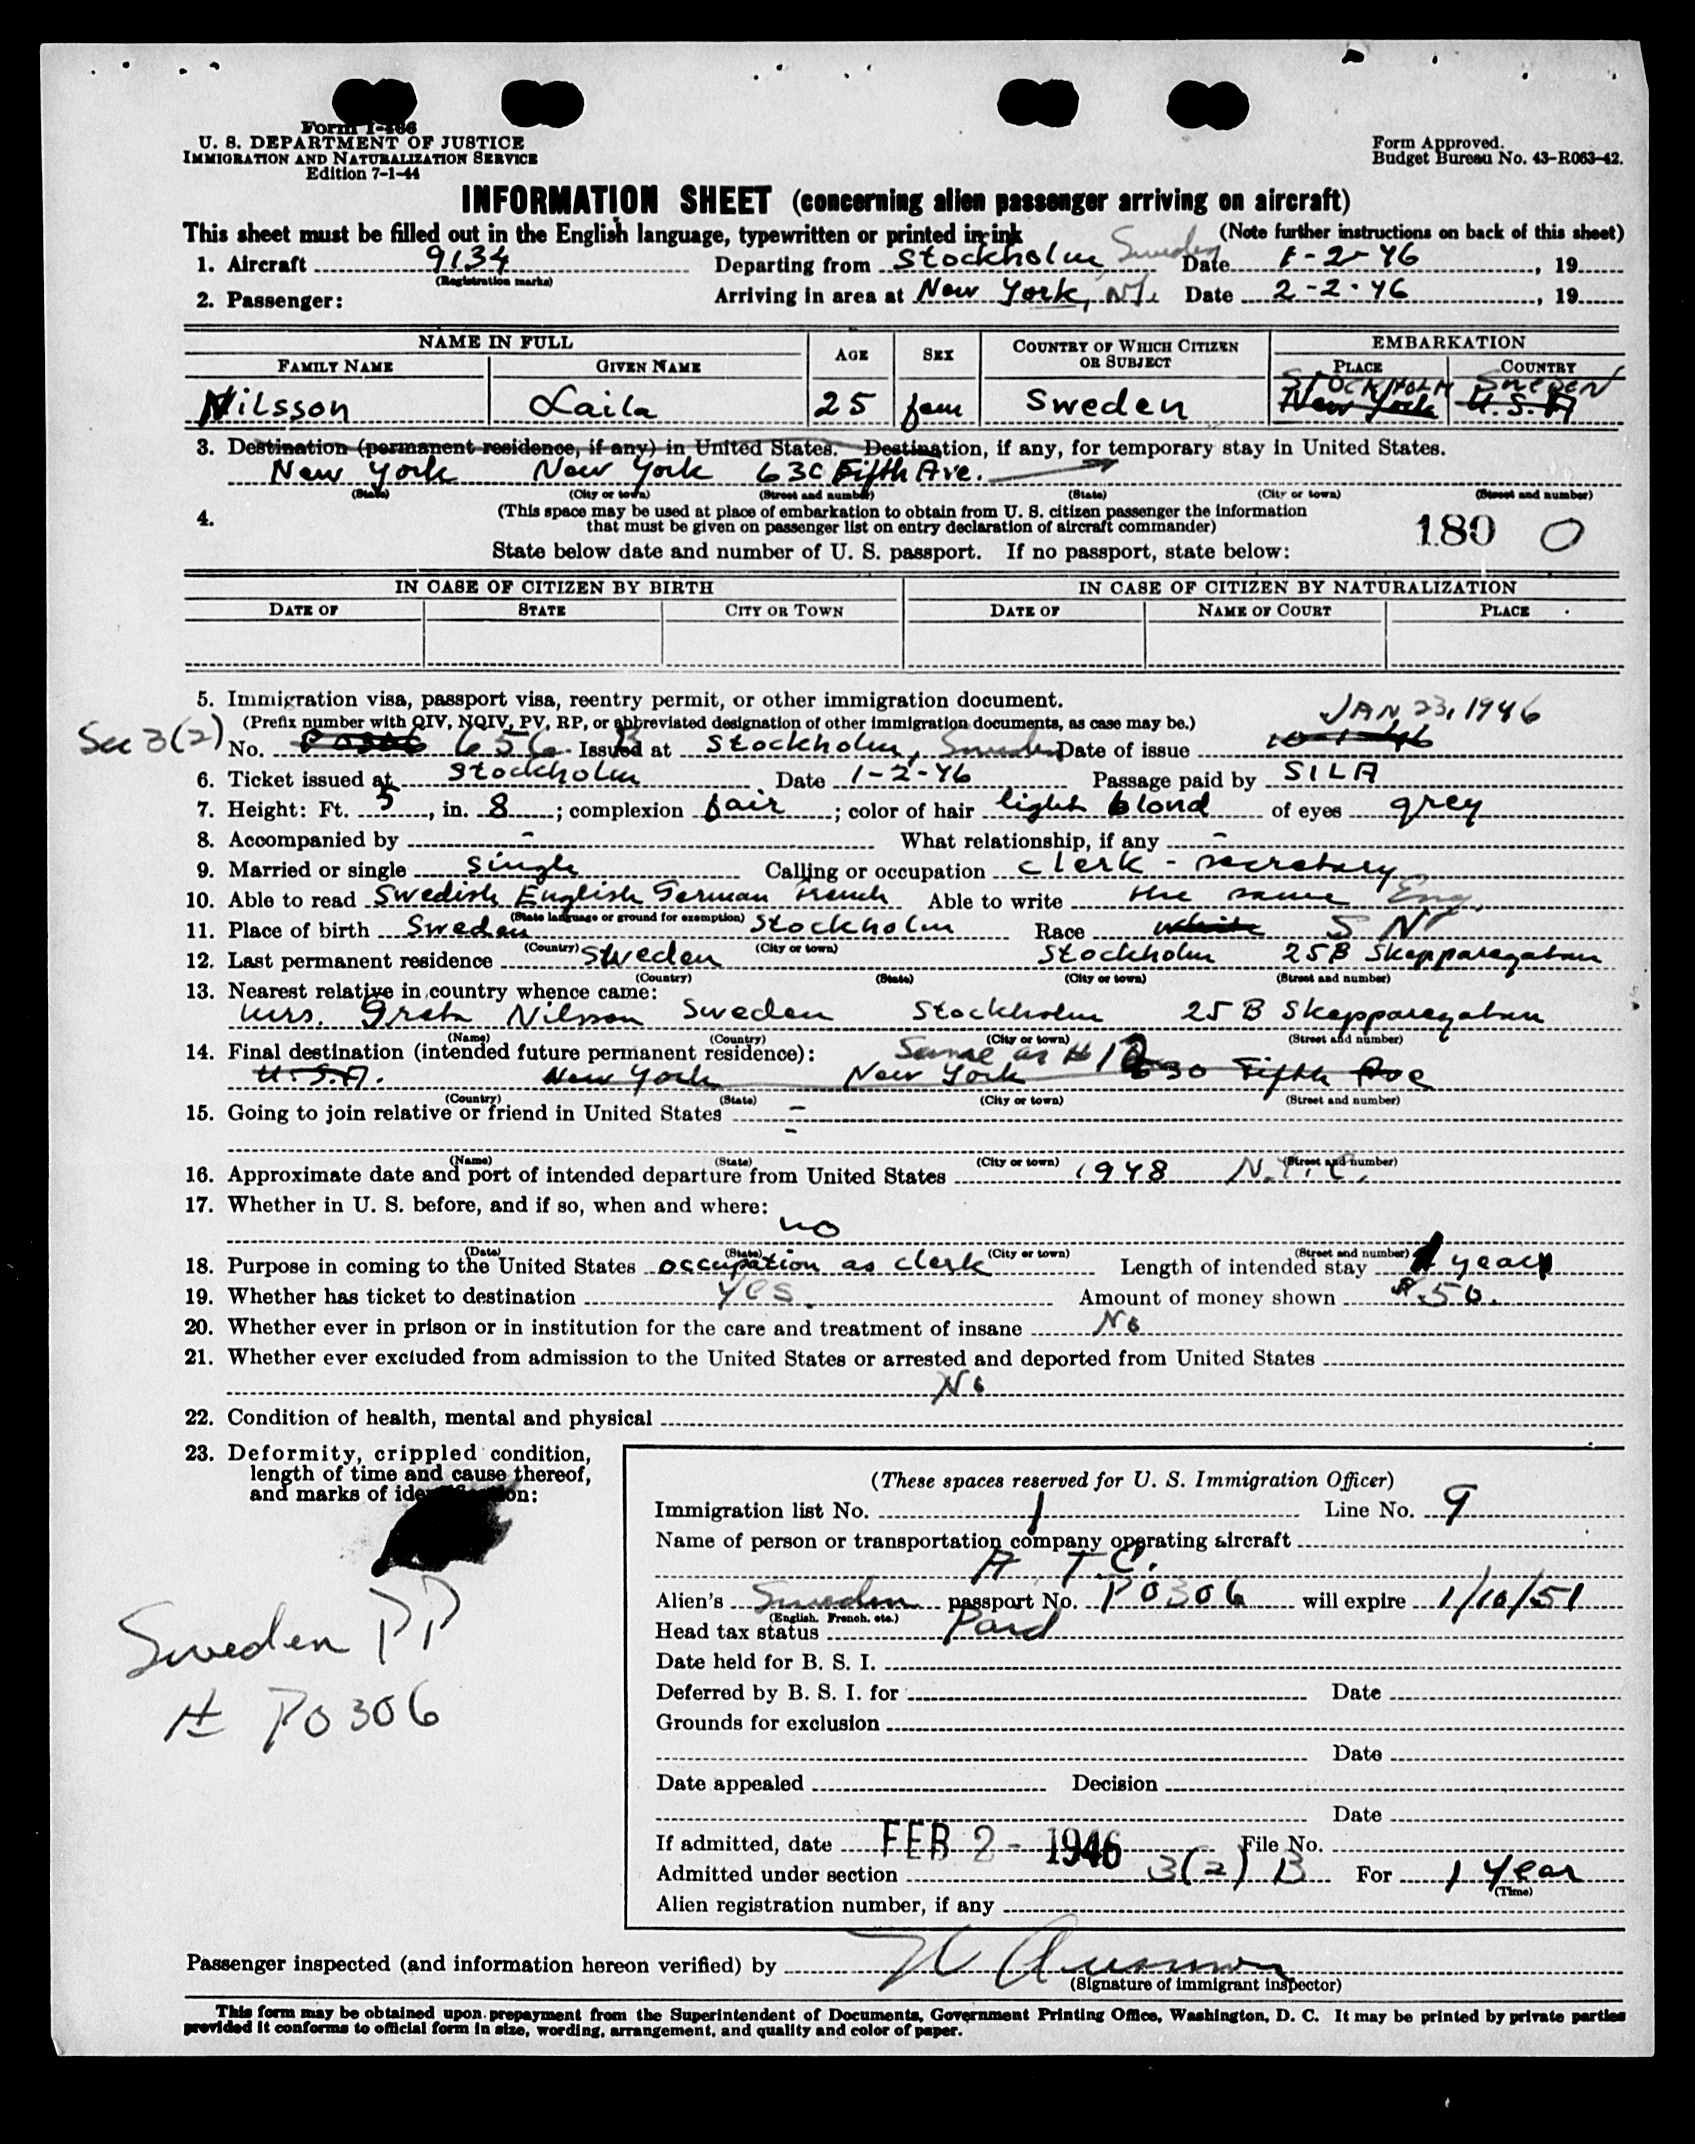 Form I-466
U. S. DEPARTMENT OF JUSTICE
IMMIGRATION AND NATURALIZATION SERVICE
Edition 7-1-44
Form Approved.
Budget Bureau No. 43-R063-42.
INFORMATION SHEET (concerning alien passenger arriving on aircraft)
This sheet must be filled out in the English language, typewritten or printed in ink (Note further instructions on back of this sheet)
1. Aircraft 9134 Departing from Stockholm Sweden Date 1-2-46, 19
(Registration marks)
2. Passenger: Arriving in area at New York, N.Y. Date 2-2-46, 19
NAME IN FULL AGE SEX COUNTRY OF WHICH CITIZEN OR SUBJECT EMBARKATION
FAMILY NAME GIVEN NAME PLACE COUNTRY
STOCKHOLM SWEDEN
Nilsson Laila 25 fem Sweden New York U.S.A
3. Destination (permanent residence, if any) in United States. Destination, if any, for temporary stay in United States.
New York New York 630 Fifth Ave.
(State) (City or town) (Street and number) (State) (City or town) (Street and number)
4. (This space may be used at place of embarkation to obtain from U. S. citizen passenger the information
that must be given on passenger list on entry declaration of aircraft commander)
180 0
State below date and number of U. S. passport. If no passport, state below:
IN CASE OF CITIZEN BY BIRTH IN CASE OF CITIZEN BY NATURALIZATION
DATE OF STATE CITY OR TOWN DATE OF NAME OF COURT PLACE
5. Immigration visa, passport visa, reentry permit, or other immigration document.
(Prefix number with QIV, NQIV, PV, RP, or abbreviated designation of other immigration documents, as case may be.) JAN 23, 1946
Sec 3(2) No. P0306 656 Issued at Stockholm, Sweden Date of issue 10-1-46
6. Ticket issued at Stockholm Date 1-2-46 Passage paid by SILA
7. Height: Ft. 5, in. 8; complexion fair; color of hair light blond of eyes grey
8. Accompanied by - What relationship, if any -
9. Married or single single Calling or occupation clerk - secretary
10. Able to read Swedish English German French Able to write the same Eng.
(State language or ground for exemption)
11. Place of birth Sweden Stockholm Race white
(Country) (City or town)
12. Last permanent residence Sweden Stockholm 25B Skepparegatan
(Country) (State) (City or town) (Street and number)
13. Nearest relative in country whence came:
Mrs. Greta Nilsson Sweden Stockholm 25 B Skepparegatan
(Name) (Country) (City or town) (Street and number)
14. Final destination (intended future permanent residence): Same as # 12
U.S.A. New York New York 630 Fifth Ave
(Country) (State) (City or town) (Street and number)
15. Going to join relative or friend in United States -
-
(Name) (State) (City or town) (Street and number)
16. Approximate date and port of intended departure from United States 1948 N.Y.C.
17. Whether in U. S. before, and if so, when and where:
no
(Date) (State) (City or town) (Street and number)
18. Purpose in coming to the United States occupation as clerk Length of intended stay 1 year
19. Whether has ticket to destination yes. Amount of money shown $.50.
20. Whether ever in prison or in institution for the care and treatment of insane No
21. Whether ever excluded from admission to the United States or arrested and deported from United States
No
22. Condition of health, mental and physical
23. Deformity, crippled condition,
length of time and cause thereof,
and marks of identification:
Sweden PP
# P0306
(These spaces reserved for U. S. Immigration Officer)
Immigration list No. 1 Line No. 9
Name of person or transportation company operating aircraft
A.T.C.
Alien's Sweden passport No. P0306 will expire 1/10/51
(English, French, etc.)
Head tax status Paid
Date held for B. S. I.
Deferred by B. S. I. for Date
Grounds for exclusion
Date
Date appealed Decision
Date
If admitted, date FEB 2 - 1946 File No.
Admitted under section 3(2) B For 1 Year
(Time)
Alien registration number, if any
Passenger inspected (and information hereon verified) by
(Signature of immigrant inspector)
This form may be obtained upon prepayment from the Superintendent of Documents, Government Printing Office, Washington, D. C. It may be printed by private parties
provided it conforms to official form in size, wording, arrangement, and quality and color of paper.